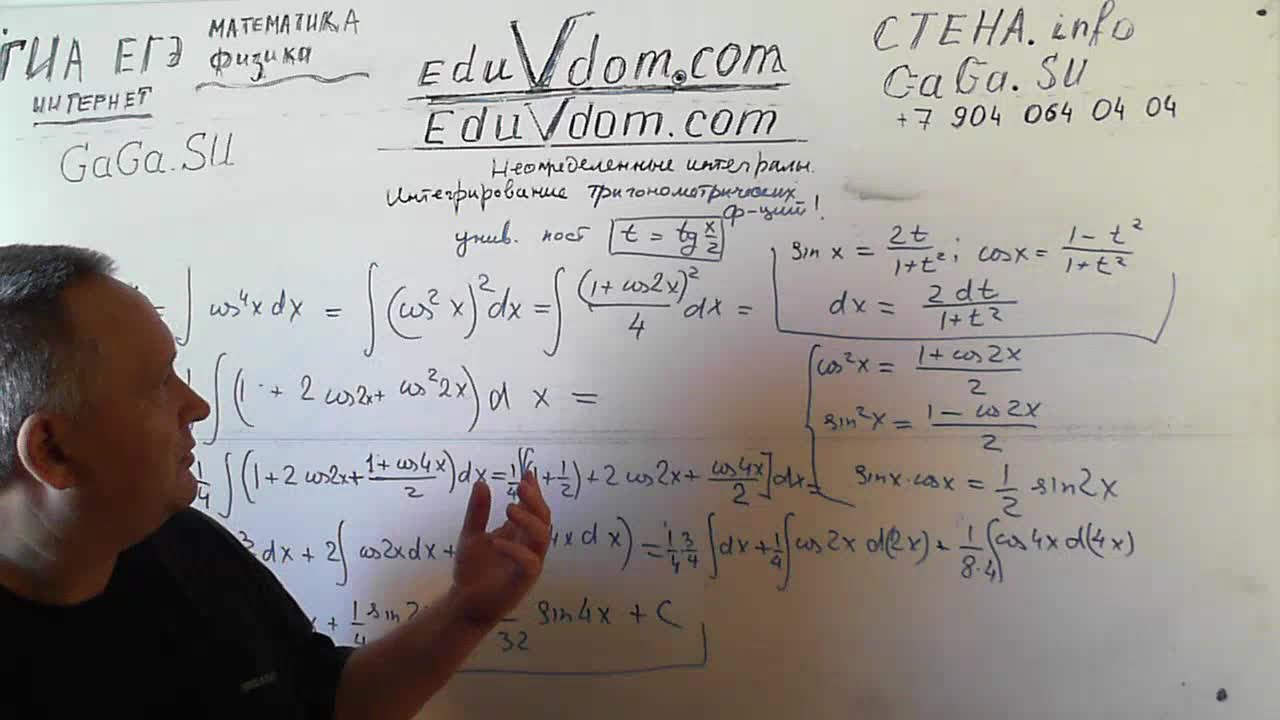 ГИА ЕГЭ МАТЕМАТИКА
физика
ИНТЕРНЕТ
GaGa.SU
EduVdom.com
EduVdom.com
СТЕНА.info
GaGa.SU
+7 904 064 04 04
Неопределенные интегралы.
Интегрирование тригонометрических
ф-ций!
унив. пост t = tg x/2
sin x = 2t/(1+t²); cosx = (1-t²)/(1+t²)
dx = 2dt/(1+t²)
= ∫ cos⁴x dx = ∫(cos²x)²dx = ∫ (1+cos2x)²/4 dx =
∫(1 + 2 cos2x + cos²2x) d x =
cos²x = (1+cos2x)/2
sin²x = (1-cos2x)/2
sinx·cosx = 1/2 sin2x
1/4 ∫(1+2 cos2x+ (1+cos4x)/2)dx = 1/4 + 1/2) + 2 cos2x + cos4x/2]dx =
3 dx + 2∫cos2xdx + 4x dx) = 1/4 3/4 ∫dx + 1/4 ∫cos2x d(2x) + 1/8·4 ∫cos4x d(4x)
x + 1/4 sin2 32 sin4x + C